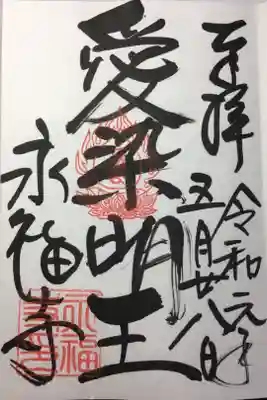 奉拝
令和元年
五月廿八日
愛染明王
永福寺
永福
寺印